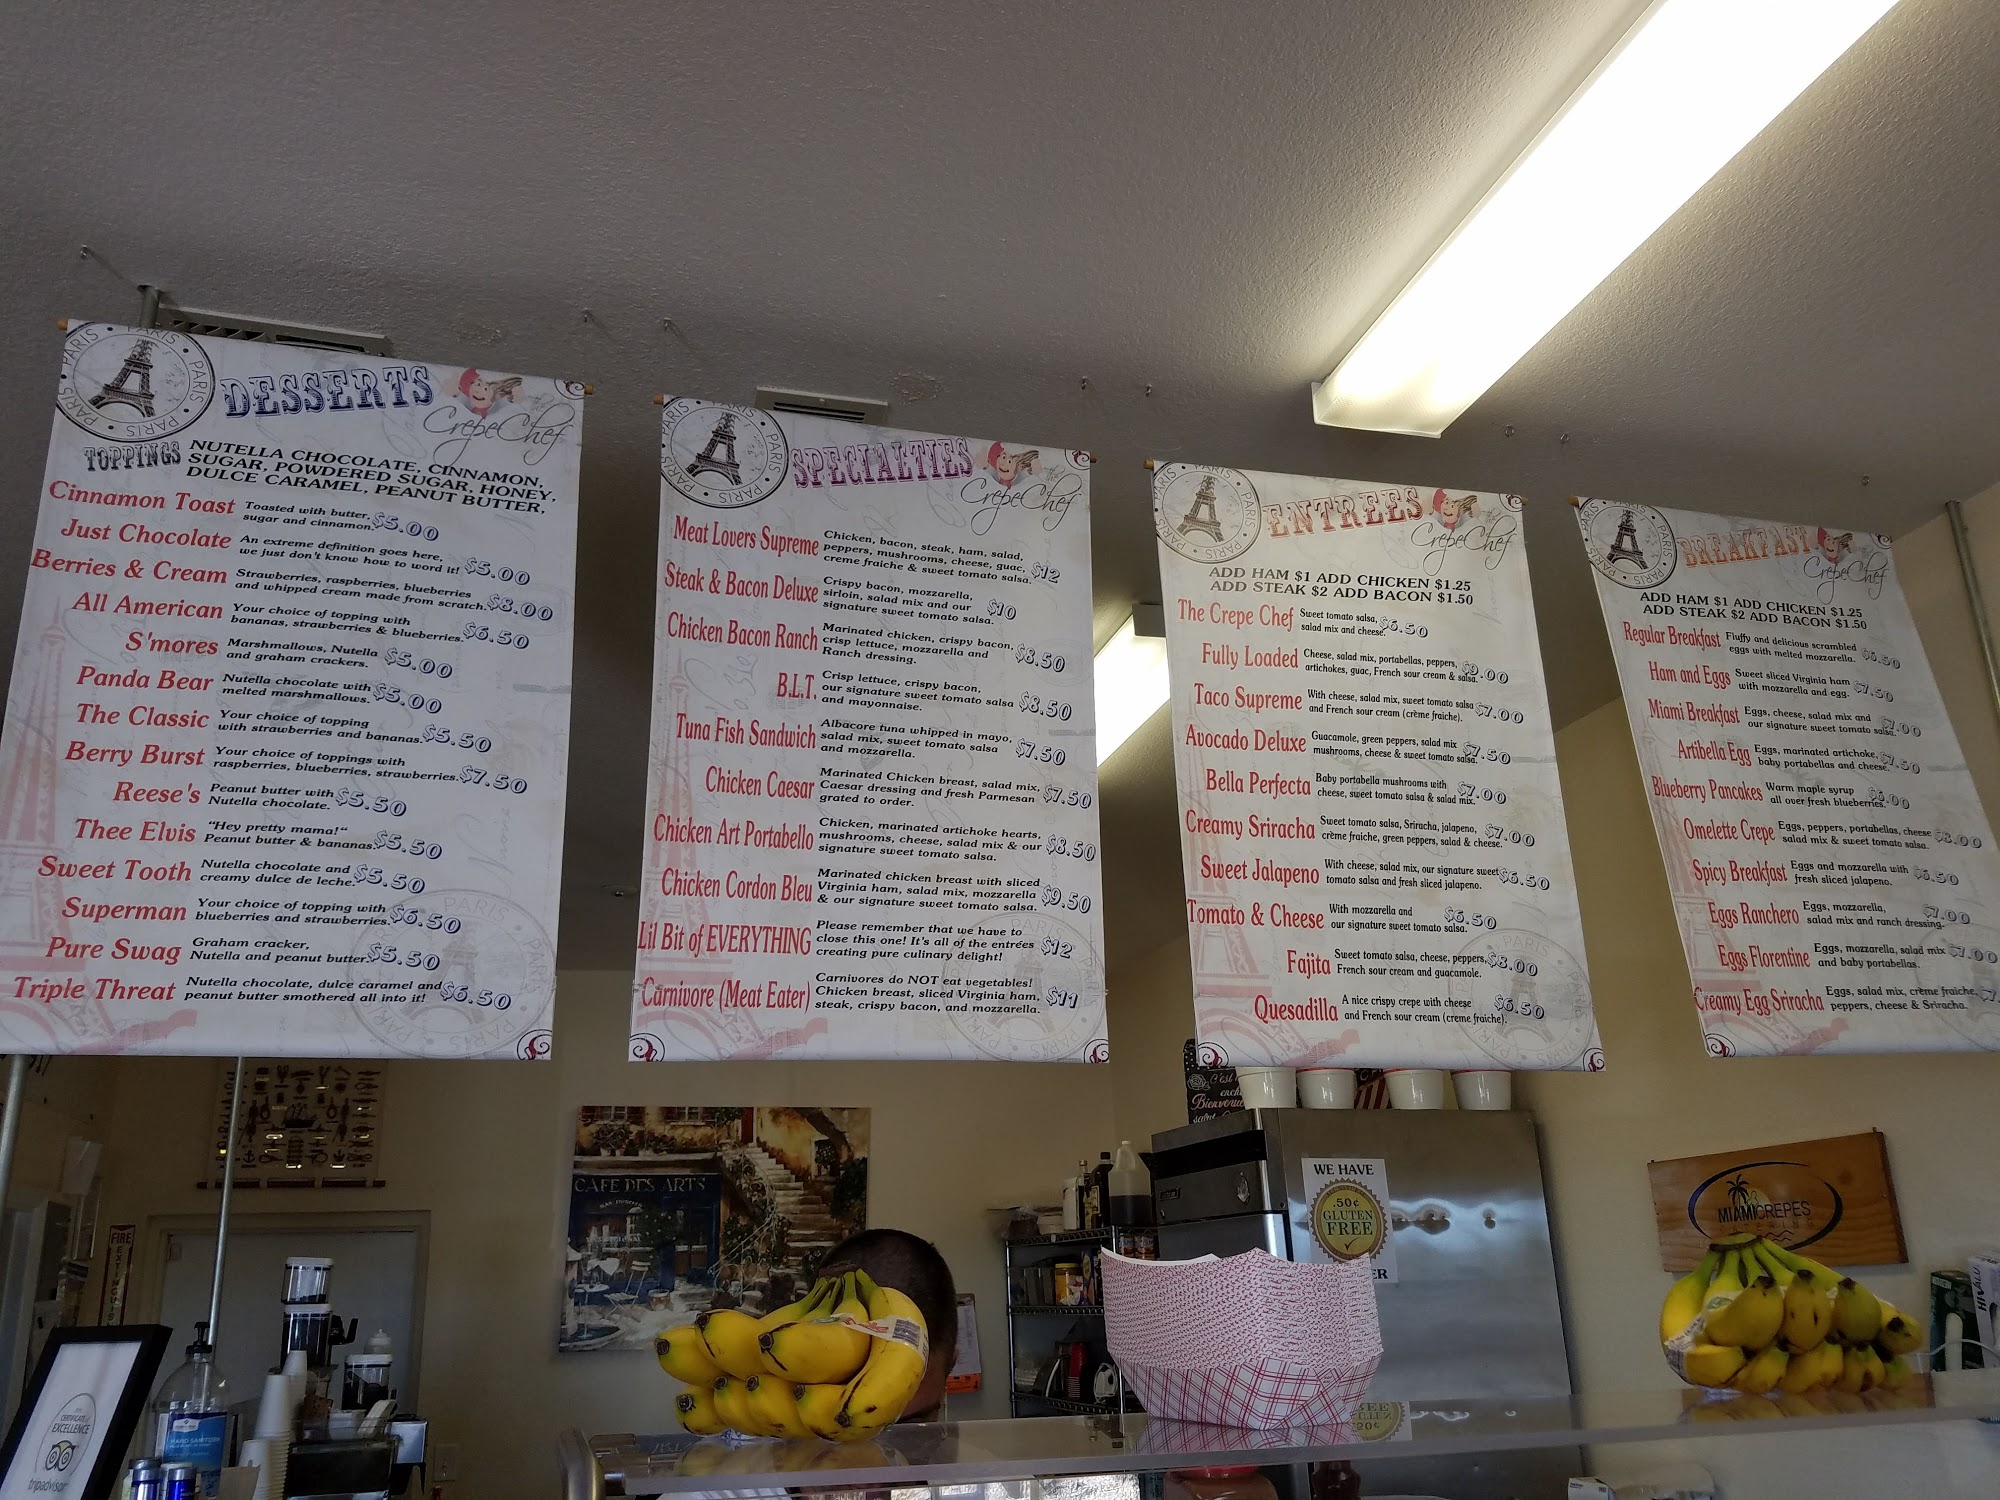 PARIS • PARIS • PARIS • PARIS
DESSERTS
the CrepeChef
TOPPINGS
NUTELLA CHOCOLATE, CINNAMON,
SUGAR, POWDERED SUGAR, HONEY,
DULCE CARAMEL, PEANUT BUTTER,
Cinnamon Toast Toasted with butter, $5.00
sugar and cinnamon.
Just Chocolate An extreme definition goes here, $5.00
we just don't know how to word it!
Berries & Cream Strawberries, raspberries, blueberries $8.00
and whipped cream made from scratch.
All American Your choice of topping with $6.50
bananas, strawberries & blueberries.
S'mores Marshmallows, Nutella $5.00
and graham crackers.
Panda Bear Nutella chocolate with $5.00
melted marshmallows.
The Classic Your choice of topping $5.50
with strawberries and bananas.
Berry Burst Your choice of toppings with $7.50
raspberries, blueberries, strawberries.
Reese's Peanut butter with $5.50
Nutella chocolate.
Thee Elvis "Hey pretty mama!" $5.50
Peanut butter & bananas.
Sweet Tooth Nutella chocolate and $5.50
creamy dulce de leche.
Superman Your choice of topping with $6.50
blueberries and strawberries.
Pure Swag Graham cracker, $5.50
Nutella and peanut butter.
Triple Threat Nutella chocolate, dulce caramel and $6.50
peanut butter smothered all into it!
PARIS • PARIS • PARIS
SPECIALTIES
the CrepeChef
Meat Lovers Supreme Chicken, bacon, steak, ham, salad,
peppers, mushrooms, cheese, guac, $12
creme fraiche & sweet tomato salsa.
Steak & Bacon Deluxe Crispy bacon, mozzarella,
sirloin, salad mix and our $10
signature sweet tomato salsa.
Chicken Bacon Ranch Marinated chicken, crispy bacon,
crisp lettuce, mozzarella and $8.50
Ranch dressing.
B.L.T. Crisp lettuce, crispy bacon,
our signature sweet tomato salsa $8.50
and mayonnaise.
Tuna Fish Sandwich Albacore tuna whipped in mayo,
salad mix, sweet tomato salsa $7.50
and mozzarella.
Chicken Caesar Marinated Chicken breast, salad mix,
Caesar dressing and fresh Parmesan $7.50
grated to order.
Chicken Art Portabello Chicken, marinated artichoke hearts,
mushrooms, cheese, salad mix & our $8.50
signature sweet tomato salsa.
Chicken Cordon Bleu Marinated chicken breast with sliced
Virginia ham, salad mix, mozzarella $9.50
& our signature sweet tomato salsa.
Lil Bit of EVERYTHING Please remember that we have to
close this one! It's all of the entrées $12
creating pure culinary delight!
Carnivore (Meat Eater) Carnivores do NOT eat vegetables!
Chicken breast, sliced Virginia ham, $11
steak, crispy bacon, and mozzarella.
PARIS • PARIS • PARIS
ENTREES
the CrepeChef
ADD HAM $1 ADD CHICKEN $1.25
ADD STEAK $2 ADD BACON $1.50
The Crepe Chef Sweet tomato salsa, $6.50
salad mix and cheese.
Fully Loaded Cheese, salad mix, portabellas, peppers, $9.00
artichokes, guac, French sour cream & salsa.
Taco Supreme With cheese, salad mix, sweet tomato salsa $7.00
and French sour cream (crème fraiche).
Avocado Deluxe Guacamole, green peppers, salad mix $7.50
mushrooms, cheese & sweet tomato salsa.
Bella Perfecta Baby portabella mushrooms with $7.00
cheese, sweet tomato salsa & salad mix.
Creamy Sriracha Sweet tomato salsa, Sriracha, jalapeno, $7.00
crème fraiche, green peppers, salad & cheese.
Sweet Jalapeno With cheese, salad mix, our signature sweet $6.50
tomato salsa and fresh sliced jalapeno.
Tomato & Cheese With mozzarella and $6.50
our signature sweet tomato salsa.
Fajita Sweet tomato salsa, cheese, peppers, $8.00
French sour cream and guacamole.
Quesadilla A nice crispy crepe with cheese $6.50
and French sour cream (creme fraiche).
PARIS • PARIS • PARIS
BREAKFAST
the CrepeChef
ADD HAM $1 ADD CHICKEN $1.25
ADD STEAK $2 ADD BACON $1.50
Regular Breakfast Fluffy and delicious scrambled $6.50
eggs with melted mozzarella.
Ham and Eggs Sweet sliced Virginia ham $7.50
with mozzarella and egg.
Miami Breakfast Eggs, cheese, salad mix and $7.00
our signature sweet tomato salsa.
Artibella Egg Eggs, marinated artichoke, $7.50
baby portabellas and cheese.
Blueberry Pancakes Warm maple syrup $6.00
all over fresh blueberries.
Omelette Crepe Eggs, peppers, portabellas, cheese $8.00
salad mix & sweet tomato salsa.
Spicy Breakfast Eggs and mozzarella with $6.50
fresh sliced jalapeno.
Eggs Ranchero Eggs, mozzarella, $7.00
salad mix and ranch dressing.
Eggs Florentine Eggs, mozzarella, salad mix $7.00
and baby portabellas.
Creamy Egg Sriracha Eggs, salad mix, crème fraiche,
peppers, cheese & Sriracha.
C'est
Bienvenue
CAFE DES ARTS
WE HAVE
.50¢
GLUTEN
FREE
MIAMICREPES
CATERING
FIRE
CERTIFICATE of
EXCELLENCE
tripadvisor
HAND SANITIZER